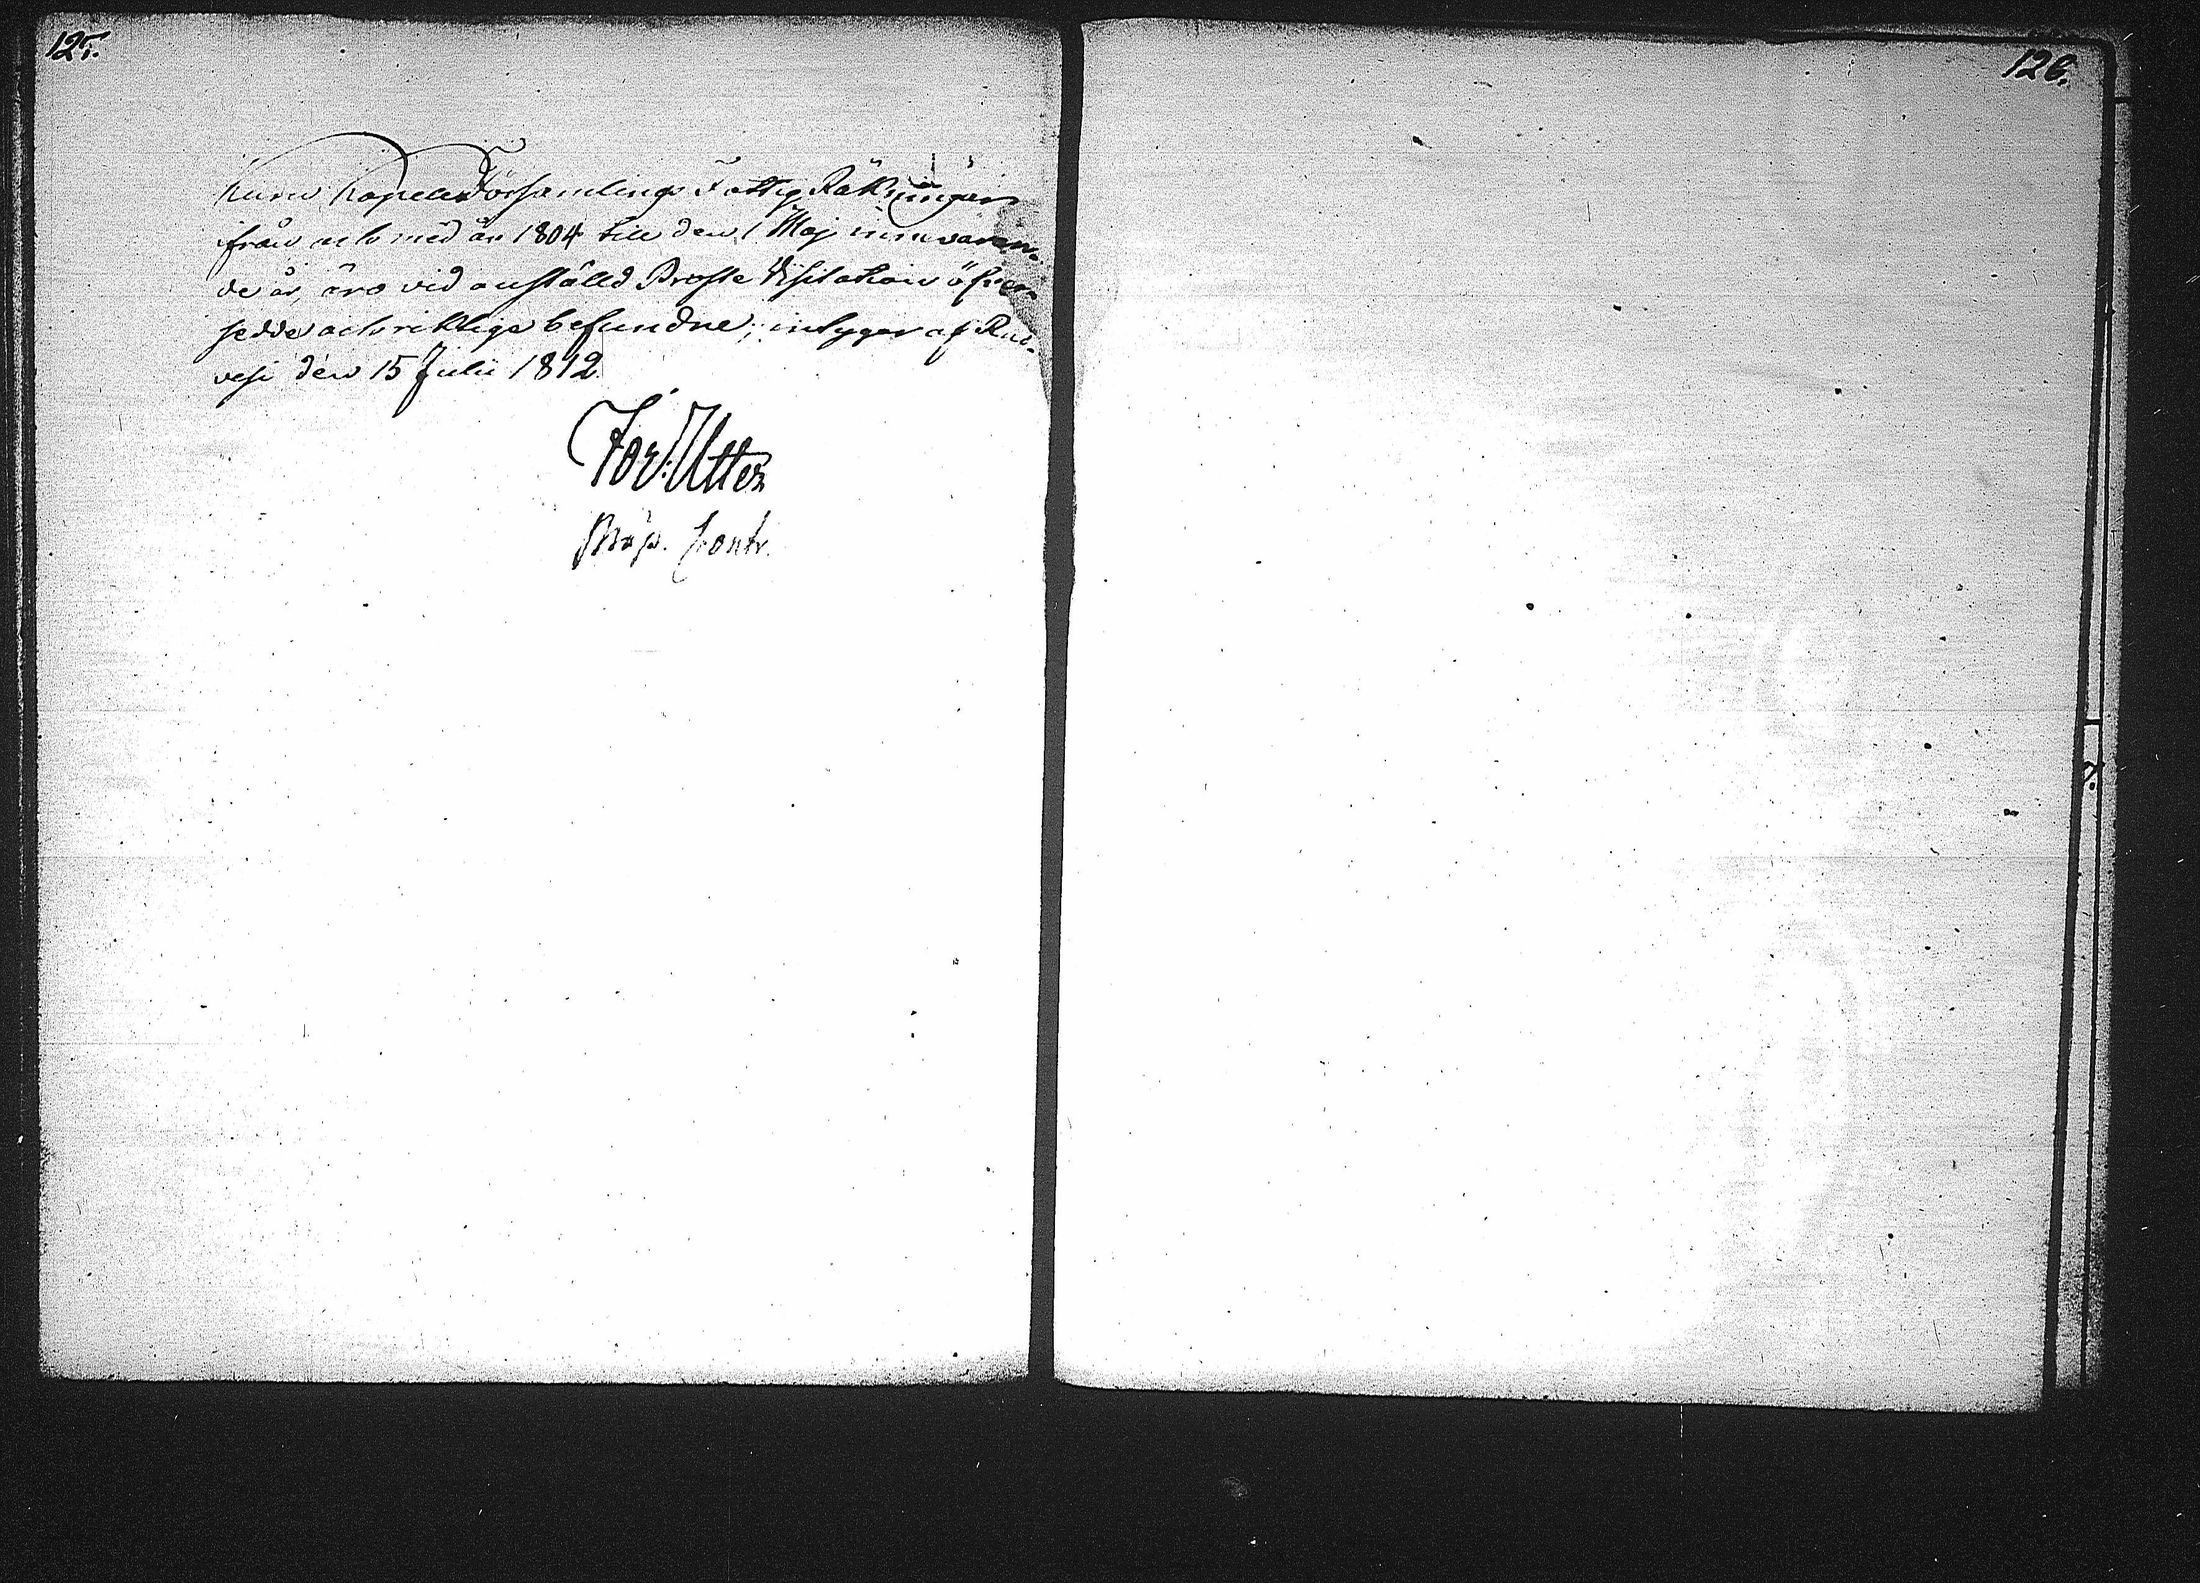 125.
126.
Kuru Capells Församlings Fattig Räkningar
ifrån och med år 1804 till den 1 Maj innevaran-
de år, äro vid anställd Prosste Visitation öfver-
sedde och riktige befundne; intygar af Ruo-
vesi den 15 Julii 1812.
For. Utter
Præp. Contr.